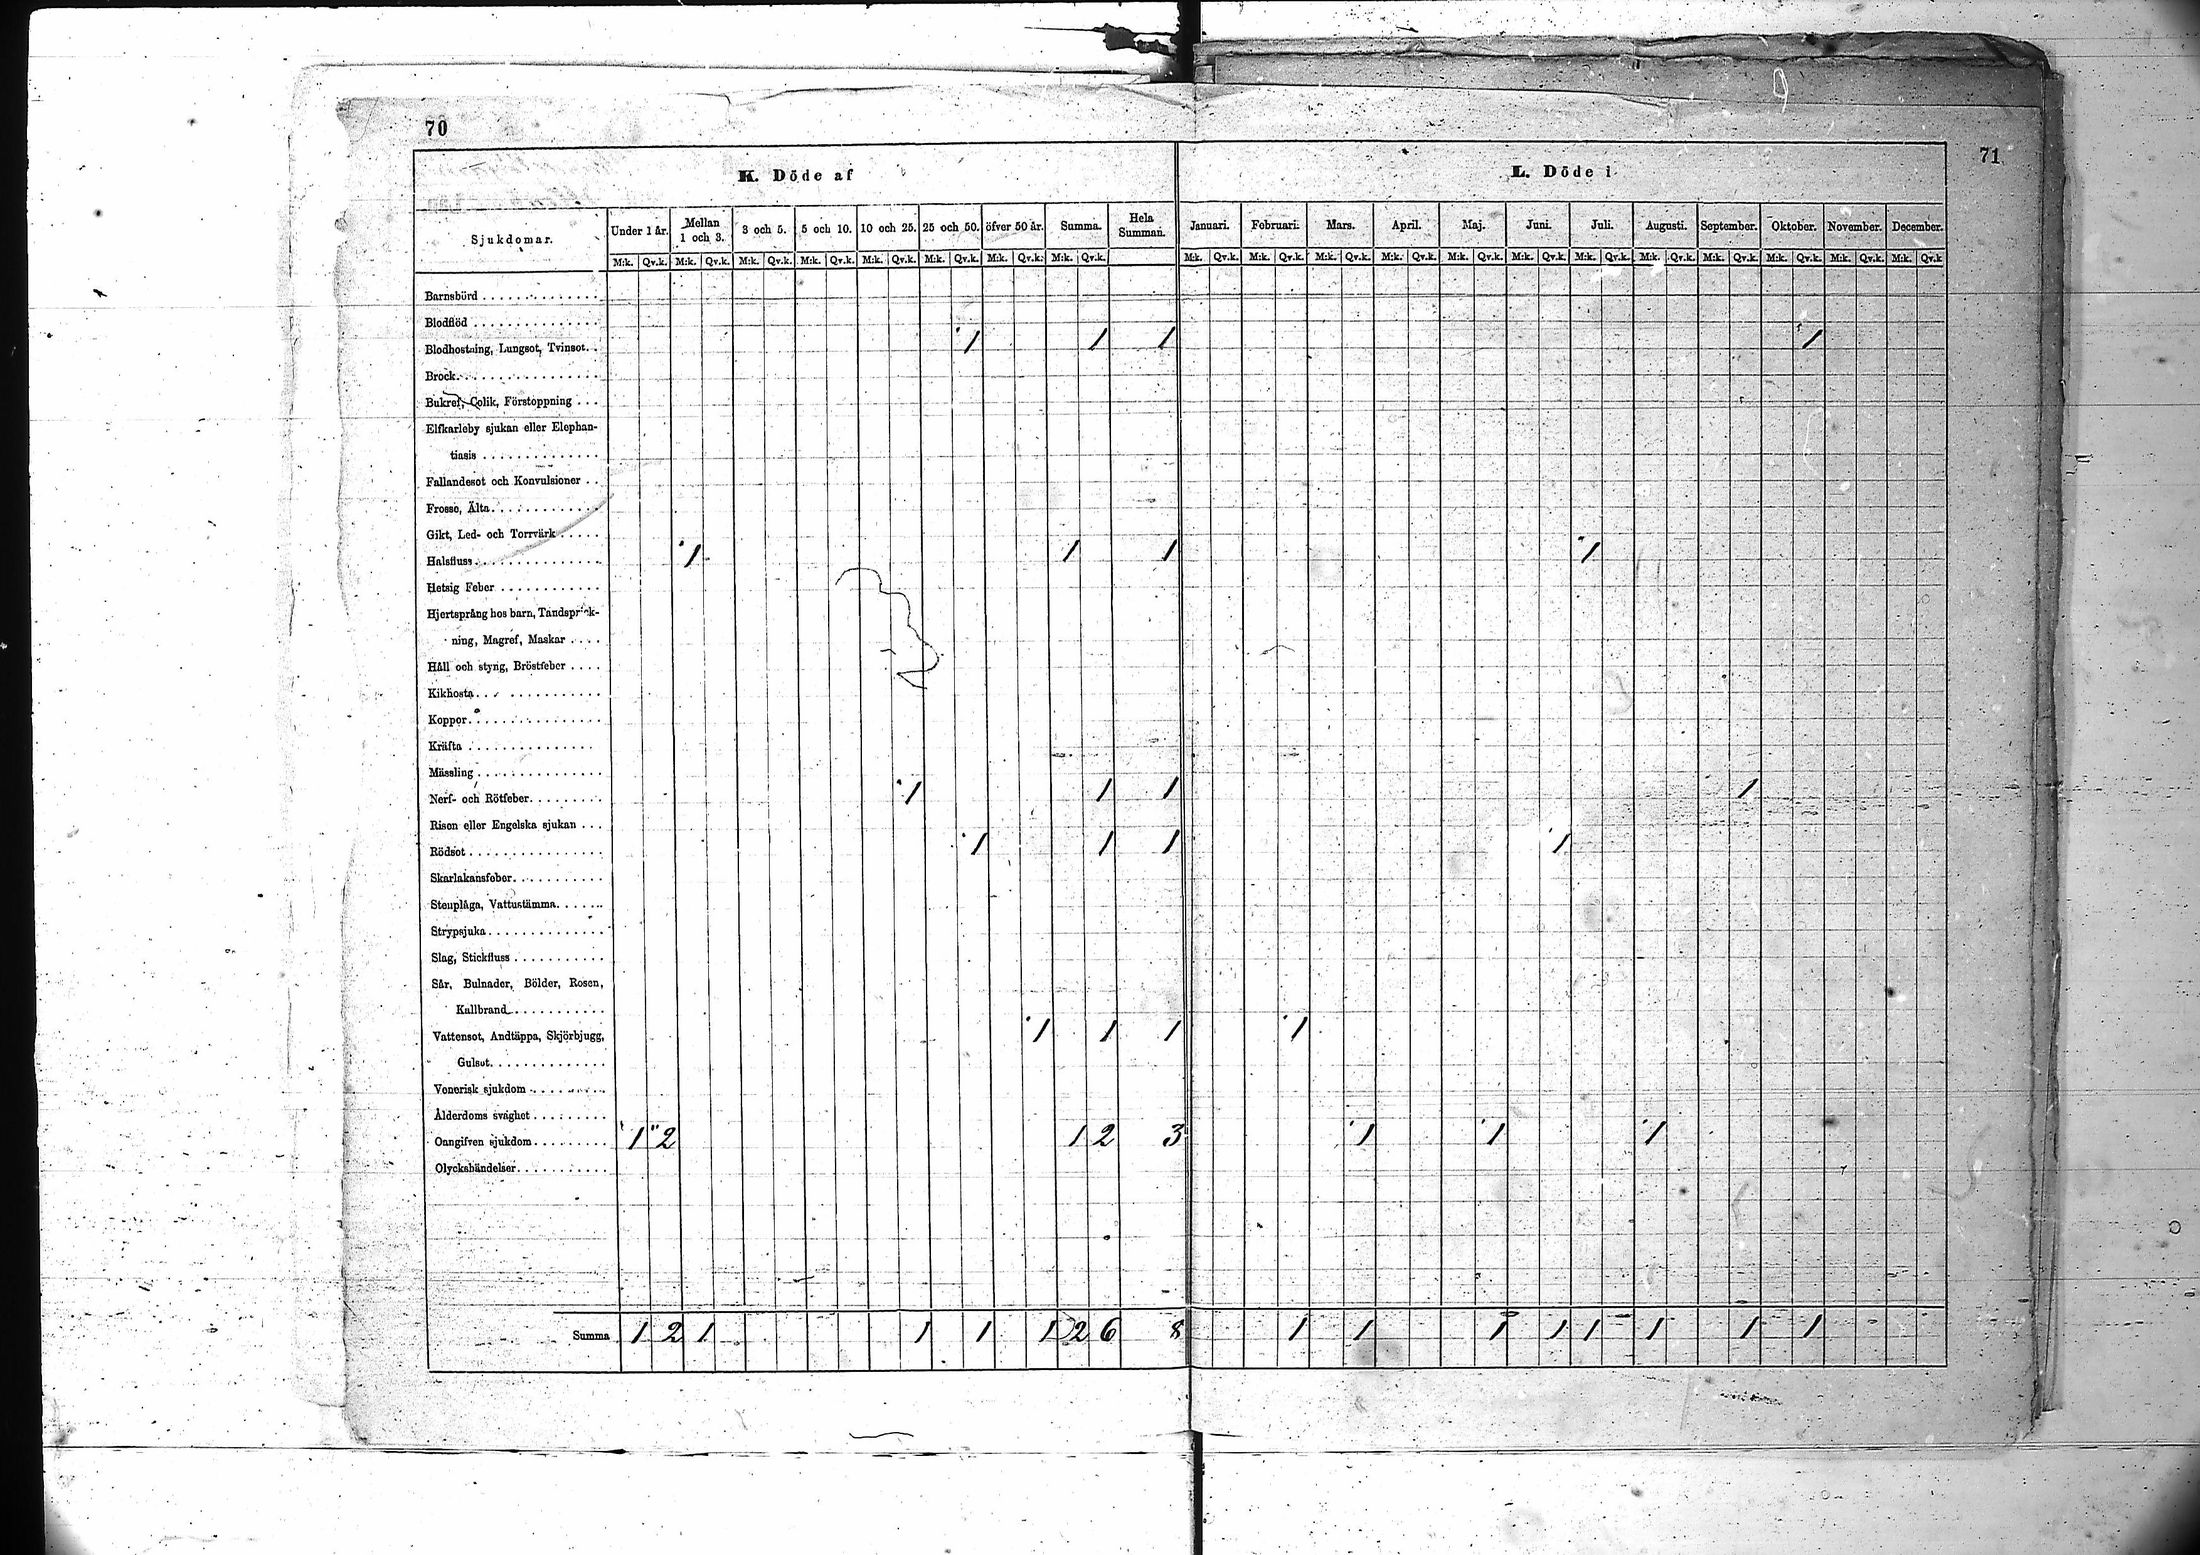 70
71
K. Döde af
L. Döde i
Sjukdomar. Under 1 år. Mellan 1 och 3. 3 och 5. 5 och 10. 10 och 25. 25 och 50. öfver 50 år. Summa. Hela Summan. Januari. Februari. Mars. April. Maj. Juni. Juli. Augusti. September. Oktober. November. December.
M:k. Qv.k. M:k. Qv.k. M:k. Qv.k. M:k. Qv.k. M:k. Qv.k. M:k. Qv.k. M:k. Qv.k. M:k. Qv.k. M:k. Qv.k. M:k. Qv.k. M:k. Qv.k. M:k. Qv.k. M:k. Qv.k. M:k. Qv.k. M:k. Qv.k. M:k. Qv.k. M:k. Qv.k. M:k. Qv.k. M:k. Qv.k. M:k. Qv.k
Barnsbörd
Blodflöd
Blodhostning, Lungsot, Tvinsot. 1 1 1 1
Brock.
Bukref, Colik, Förstoppning
Elfkarleby sjukan eller Elephan-
tiasis
Fallandesot och Konvulsioner
Frosso, Älta.
Gikt, Led- och Torrvärk
Halsfluss 1 1 1 1
Hetsig Feber
Hjertsprång hos barn, Tandsprick-
ning, Magref, Maskar
Håll och styng, Bröstfeber
Kikhosta
Koppor
Kräfta
Mässling
Nerf- och Rötfeber 1 1 1 1
Risen eller Engelska sjukan
Rödsot 1 1 1 1
Skarlakansfeber
Stenplåga, Vattustämma
Strypsjuka
Slag, Stickfluss
Sår, Bulnader, Bölder, Rosen,
Kallbrand
Vattensot, Andtäppa, Skjörbjugg, 1 1 1 1
Gulsot
Venerisk sjukdom
Ålderdoms svaghet
Oangifven sjukdom 1 2 1 2 3 1 1 1
Olyckshändelser
Summa 1 2 1 1 1 1 2 6 8 1 1 1 1 1 1 1 1